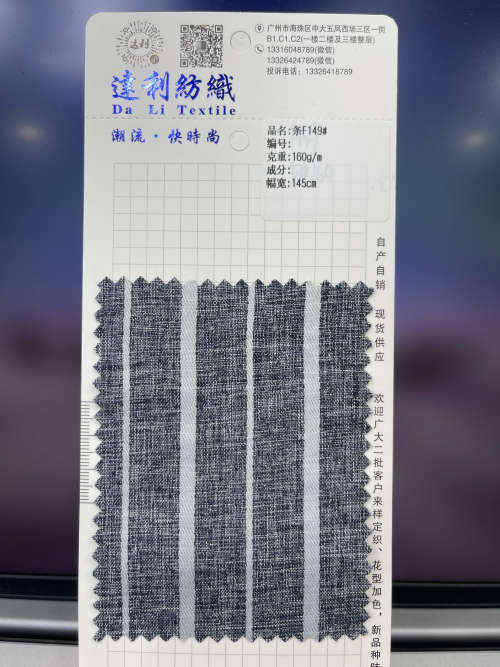 达利
广州市海珠区中大五凤西场三区一街
B1.C1.C2(一楼二楼及三楼整层)
13316048789(微信)
13326424789(微信)
投诉电话：13326418789
達利紡織
Da Li Textile
潮流·快時尚
品名:条F149#
编号:
克重:160g/m
成分:
幅宽:145cm
自产自销 现货供应 欢迎广大二批客户来样定织、花型加色，新品种